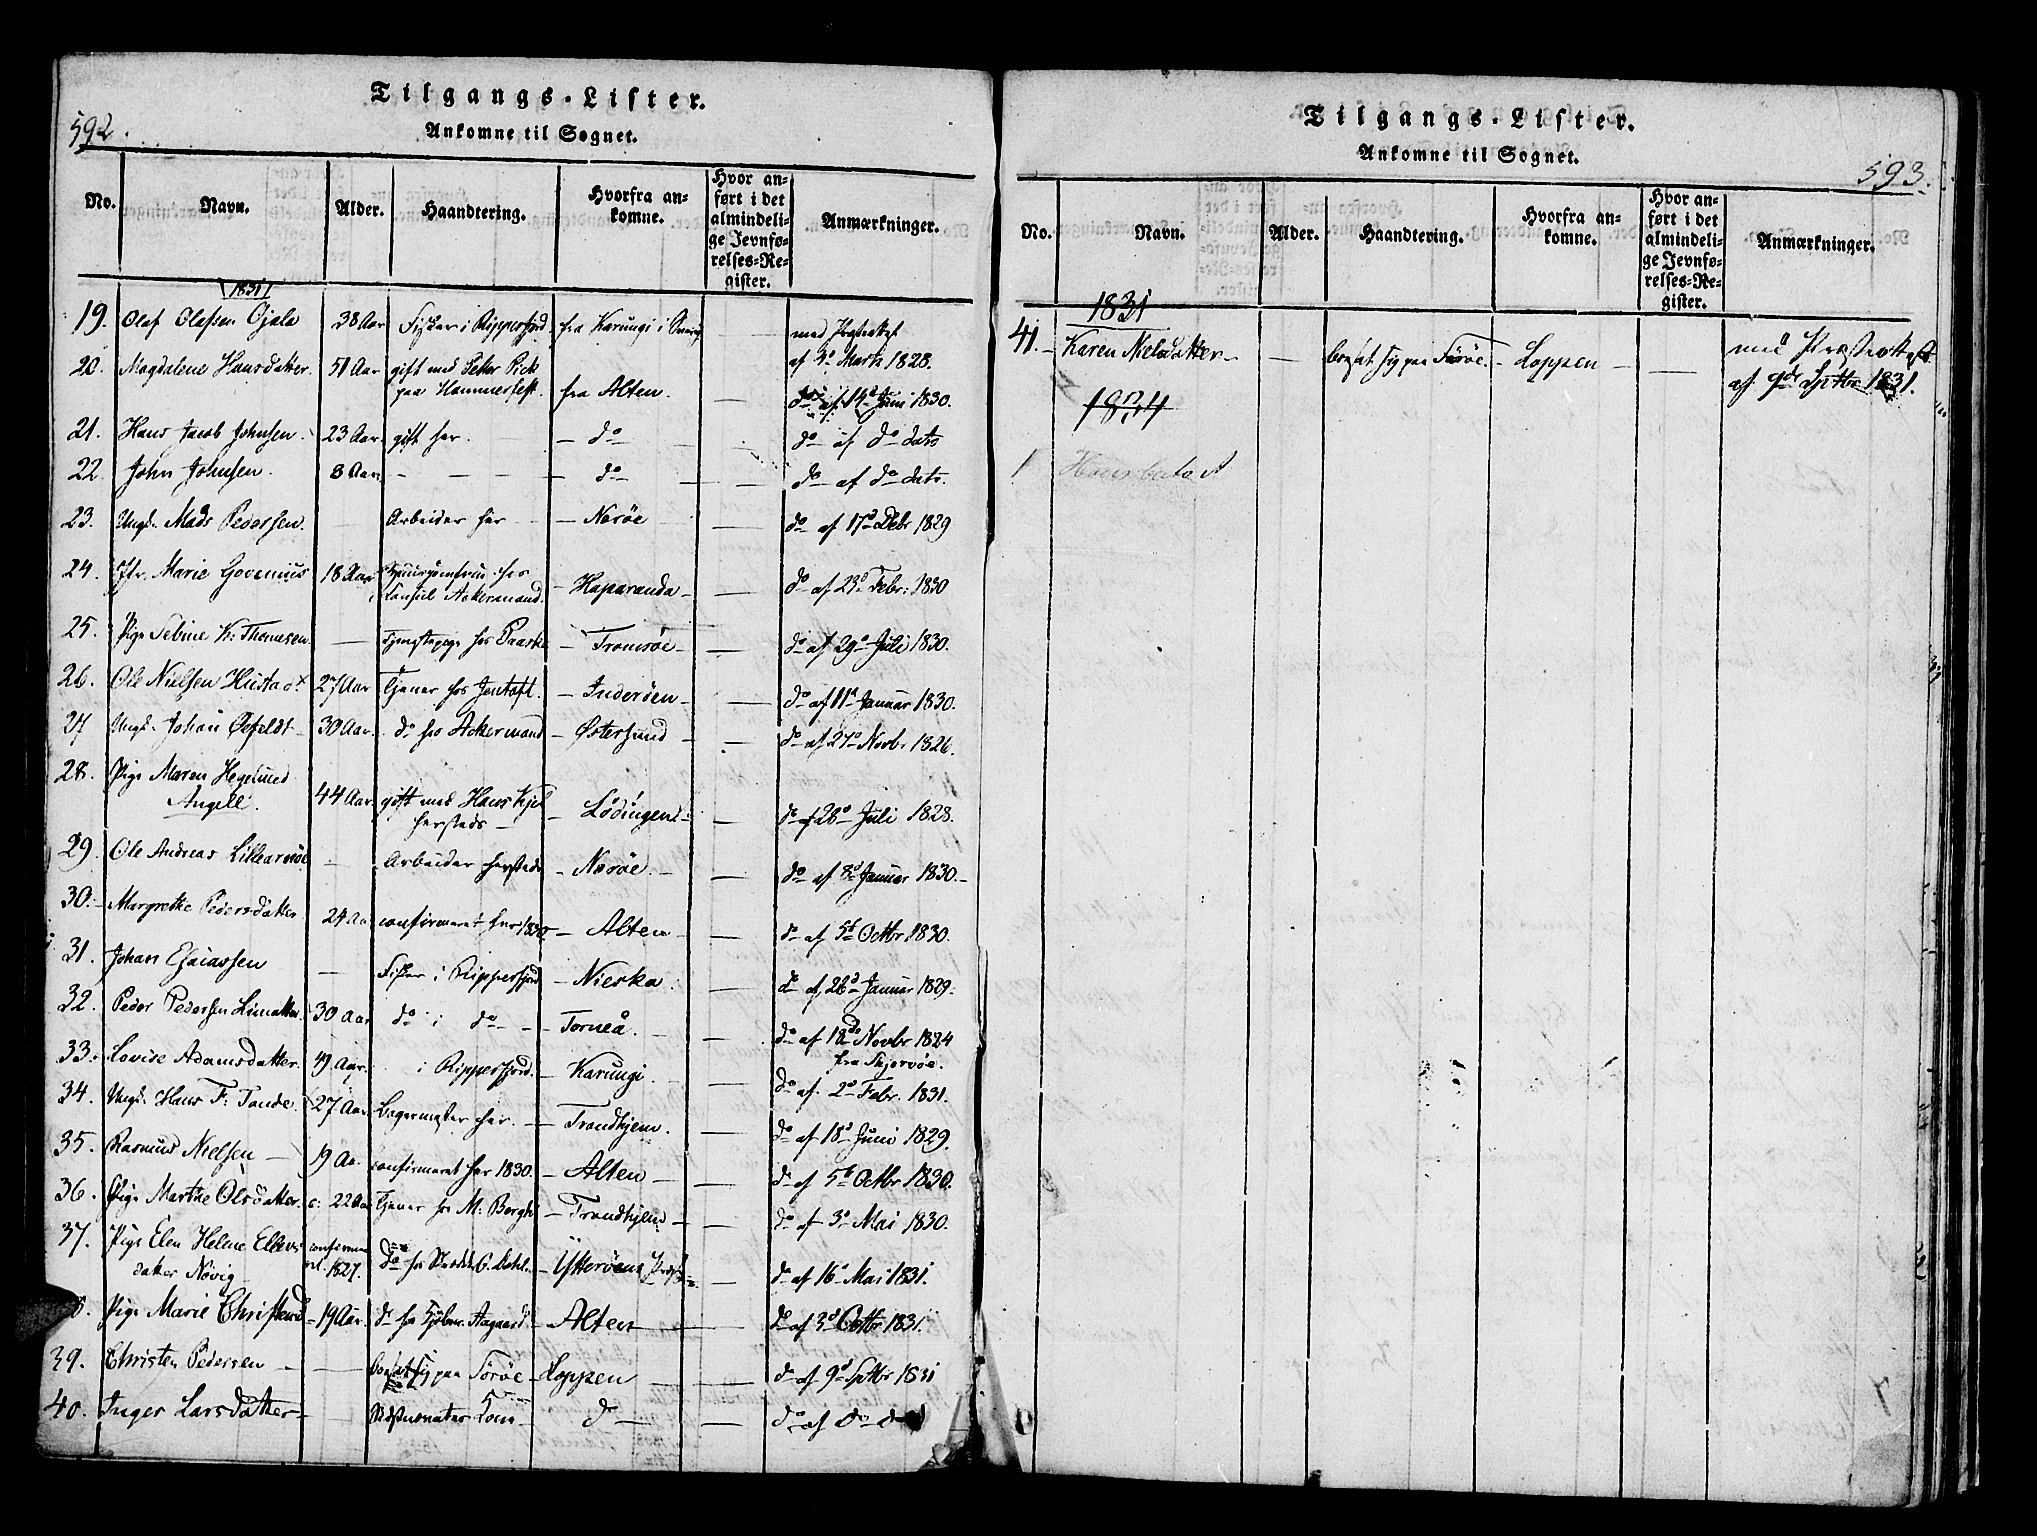 592.
Tilgangs-Lister.
Ankomne til Sognet.
No. Navn. Alder. Haandtering. Hvorfra ankomne. Hvor anført i det almindelige Jevnførelses-Register. Anmærkninger.
1831
19. Olaf Olafsen Ojala 38 Aar Fisker i Ripperfjord fra Karungi i — med Præsteattest af 3d Marts 1828.
20. Magdalene Hansdatter. 51 Aar gift med Peter Pick paa Hammerfest. fra Alten. — do af 14d Juni 1830.
21. Hans Jacob Johnsen. 23 Aar. gift her. — do — do af do dato
22. John Johnsen. 8 Aar. — — — do — — do af do dato.
23. Ungk. Mads Pedersen. — Arbeider her — Nærøe — do af 17d Debr 1829
24. Jfr. Marie Govenius 18 Aar Huusjomfrue hos Consul Ackermand. — Haparanda — — do af 23d Febr: 1830
25. Pige Sebine K: Thomesen. — Tjenestepige hos Paaske — Tromsöe — — do af 29d Juli 1830.
26. Ole Nielsen Hustad 27 Aar Tjener hos Jentoft. — Inderöen — — do af 11d Januar 1830.
27 Ungk. Johan Öefeldt — 30 Aar. do hos Ackermand — Østersund — — do af 27d Novbr 1826.
28. Pige Maren Hegelund Angell. 44 Aar. gift med Hans Kjel hersteds — — Lödingen — — do af 28d Juli 1828.
29. Ole Andreas Lillearnöe — Arbeider hersteds — Næröe. — — do af 8d Januar 1830. —
30. — Margrethe Pedersdatter 24 Aar confirmeret her 1830. — Alten — — do af 5t Octbr 1830.
31. Johan Esaiassen — Fisker i Ripperfjord — Nieska. — do af 26d Januar 1829.
32. Peder Pedersen Limatter. 30 Aar do i do — — Torneå. — — do af 18de Novbr 1824 fra Skjervöe.
33. Lovise Adamsdatter. 49 Aar. i Ripperfjord. — Karungi. — do af 2d Febr. 1831.
34. Ungk. Hans F: Tande. 27 Aar. Bagermester her. — Trondhjem. — do af 18d Juni 1829.
35. Rasmus Nielsen — 19 Aa. confirmeret her 1830. — Alten — — do af 5t Octbr 1830.
36. Pige Marthe Olsdatter. c: 22 Aar Tjener hos M: Bergh — Trondhjem — — do af 3d Mai 1830.
37. Pige Elen Helene Ellevs datter Növig confirmeret 1827. do hos C. Dahl. — Ytteröens — do af 16d Mai 1831.
8. Pige Marie Christensd — 19 Aar. do hos Kjöbm. Aagaard Alten — — do af 3d Octbr 1831.
39. Christen Pedersen — — bosat sig paa Söröe — Loppen — — do af 9d Sptbr 1831
40. Inger Larsdatter — — do — — do af do do
593.
Tilgangs-Lister.
Ankomne til Sognet.
No. Navn. Alder. Haandtering. Hvorfra ankomne. Hvor anført i det almindelige Jevnførelses-Register. Anmærkninger.
1831
41. — Karen Nielsdatter — — bosat sig paa Söröe. — Loppen — — med Præsteattest af 9de Sptbr 1831.
1834
1